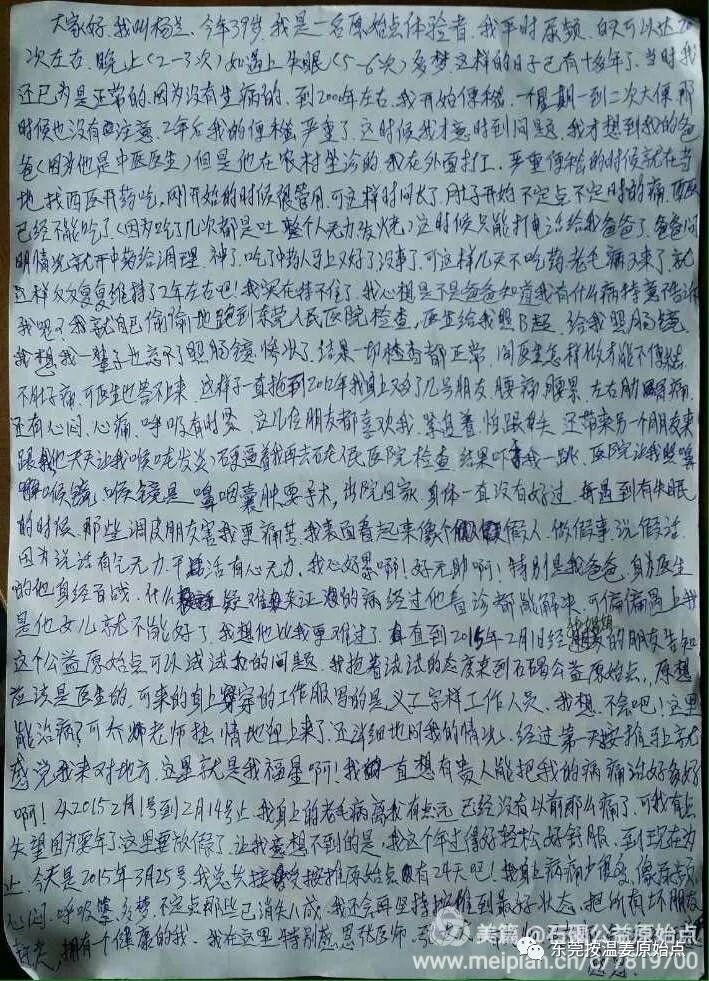 大家好.我叫杨兰.今年39岁.我是一名原始点体验者.我平时尿频.白天可以达20
次左右.晚上(2-3次)如遇上失眠(5-6次)多梦.这样的日子已有十多年了.当时我
还已为是正常的.因为没有生病的.到2000年左右.我开始便秘.一个星期一到二次大便那
时候也没有注意.2年后我的便秘严重了.这时候我才意时到问题.我才想到我的爸
爸(因为他是中医医生)但是他在农村坐诊的.我在外面打工.严重便秘的时候就在当
地.找西医开药吃.刚开始的时候很管用.可这样时间长了.肚子开始不定点不定时的痛.西药
已经不能吃了(因为吃了几次都是吐.整个人无力发烧)这时候只能打电话给我爸爸了.爸爸问
明情况就开中药给调理.神了.吃了中药人马上又好了没事了.可这样几天不吃药老毛病又来了.就
这样反反复复维持了2年左右吧!我实在持不住了.我心想是不是爸爸知道我有什么病特意不告诉
我呢?我就自己偷偷地跑到东莞人民医院检查.医生给我照B超.给我照肠镜.
我想我一辈子也忘不了照肠镜.惨呀.结果一切检查都正常.问医生怎样做才能不便秘.
不肚子痛.可医生也答不来.这样子一直拖到2012年我身上多了几号朋友.腰痛.腰累.左右肋痛.
还有心闷.心痛.呼吸有时累.这几位朋友都喜欢我.紧追着.怕跟丢.还带来另一个朋友来
跟我.他天天让我喉咙发炎.硬逼着我再去石龙人民医院检查.结果吓了我一跳.医院让我照鼻
喉镜.喉镜是鼻咽囊肿要手术.出院回家.身体一直没有好过.再遇到有失眠
的时候.那些调皮朋友害我更痛苦.我表面看起来像个假人.做假事.说假话.
因为说话有气无力.干活有心无力.我心好累啊!好无助啊!特别是我爸爸.身为医生
的他身经百战.什么疑难杂症的病经过他看诊都能解决.可偏偏遇上我
是他女儿就不能好了.我想他比我更难过了.直到2015年2月1日经的朋友告知
这个公益原始点可以试试我的问题.我抱着试试的态度来到石碣公益原始点.原想
应该是医生的.可来的身上穿的工作服写的是义工字样工作人员.我想.不会吧!这里
能治病?可乔老师热情地迎上来了.还详细地问我的情况.经过第一天按推.马上就
感觉我来对地方.这里就是我福星啊!我一直想有贵人能把我的病痛治好多好
啊!从2015 2月1号到2月14号止.我身上的老毛病离我有点元.已经没有以前那么痛了.可我有点
失望因为要年了.这里要放假了.让我意想不到的是.我这个年过得好轻松好舒服.到现在为
止.今天是2015年3月25号.我总共接受按推原始点有24天吧!我身上病痛少很多.像尿频
心闷.呼吸累.多梦.不定点那些已消失八成.我还会再坚持按推到最好状态.把所有坏朋友
赶走.拥有一个健康的我.我在这里特别感恩张医师.
美篇 @石碣公益原始点
东莞按温姜原始点